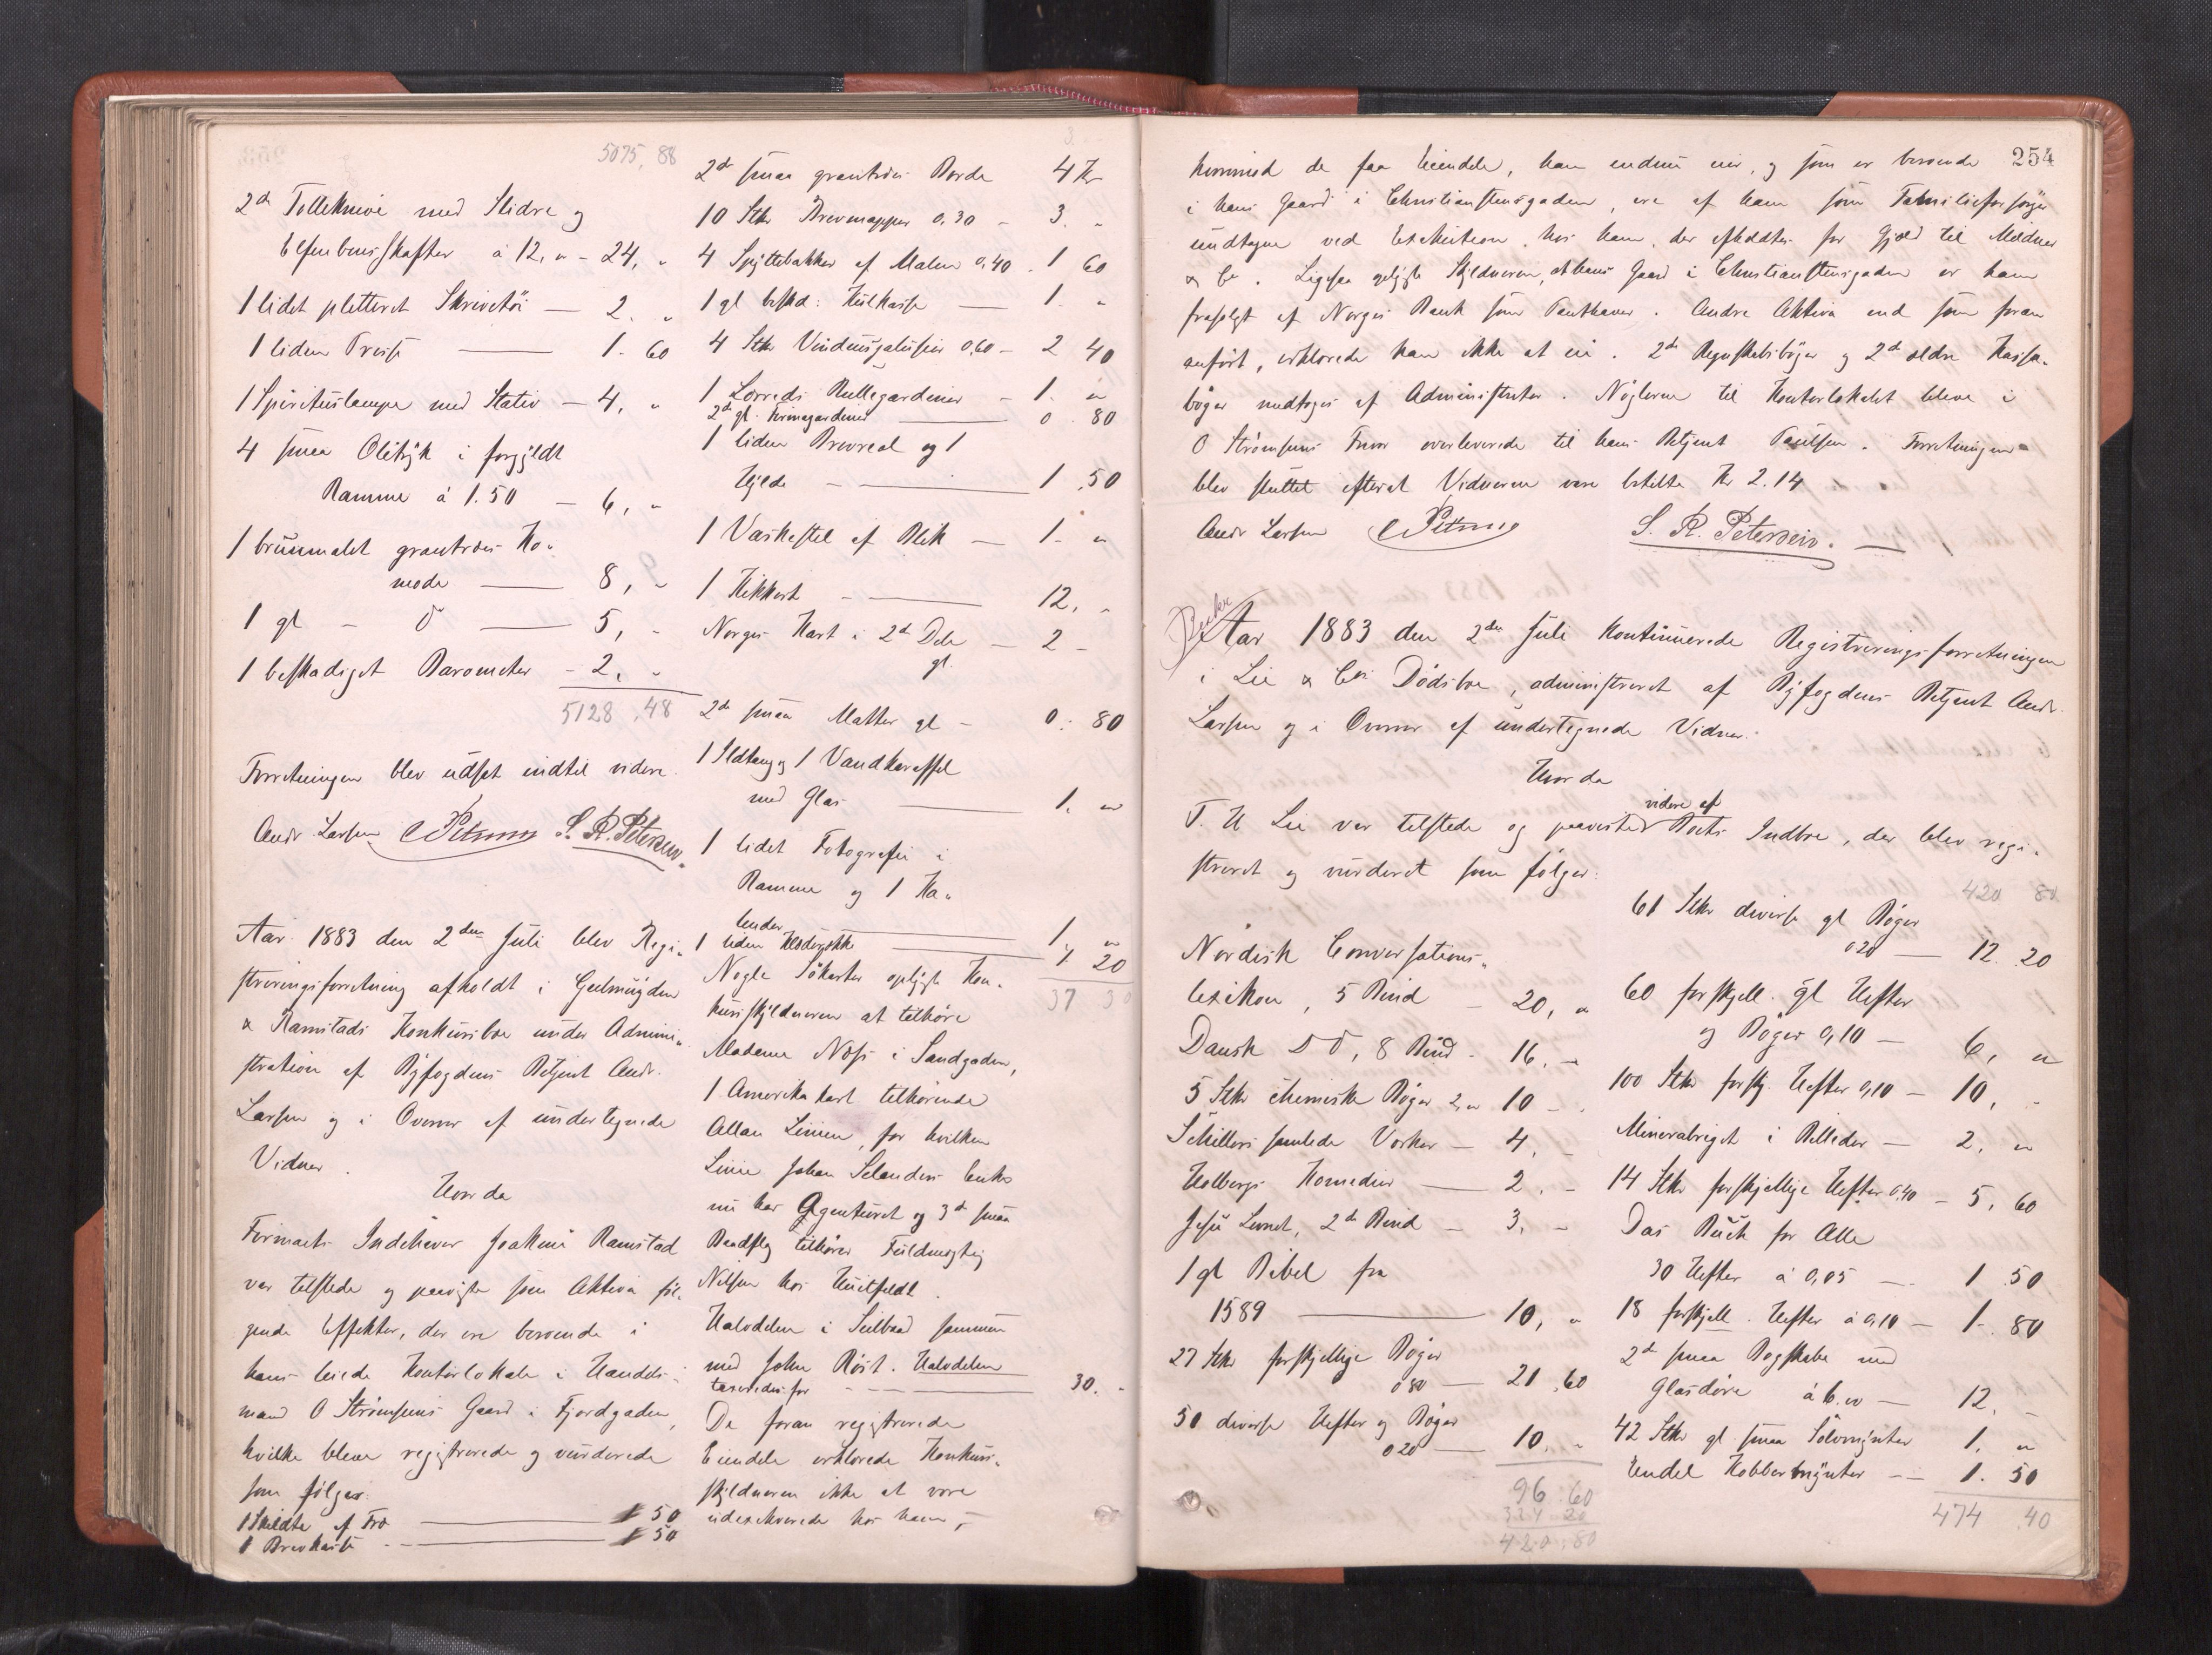 5075, 88
2de Tolleknive med Slidre og
Elfenbensskafter à 12, " - 24, "
1 lidet pletteret Skrivetöi — 2. "
1 liden Presse — 1. 60
1 Spirituslampe med Stativ — 4, "
4 smaa Olietryk i forgyldt
Ramme à 1.50 — 6, "
1 brunmalet grantræes Ko-
mode — 8, "
1 gl — do — 5, "
1 beskadiget Barometer - 2, "
5128, 48
Forretningen blev udsat indtil videre.
Andr Larsen CPeterson S. R. Petersen.
Aar 1883 den 2den Juli blev Regi-
streringsforretning afholdt i
& Ramstads Konkursbo under Admini-
stration af Byfogdens Betjent Andr.
Larsen og i Overvær af undertegnede
Vidner.
Hvorda
Firmaets Indehaver Joakim Ramstad
var tilstede og paaviste som Aktiva føl-
gende Effekter, der ere beroende i
hans leiede Kontorlokale i Handels-
mand O Strömsens Gaard i Fjordgaden,
hvilke bleve registrerede og vurderede
som følger:
1 Skildte af Træ — 50
1 Brevkasse — 50
3.
2de smaa grantræes Borde 4 Kr
10 Stkr Brevmapper 0,30 - 3. "
4 Spyttebakker af Malm 0,40 - 1 60
1 gl beskd: Kulkasse — 1. "
4 Stkr Vinduesgalusier 0,60 - 2 40
1 Lærreds Rullegardiner - 1. "
2de gl. Trimegardiner — 0. 80
1 liden Brevreol og 1
Hylde — 1.50
1 Vaskestel af Blik — 1. "
1 Kikkert — 12, "
Norges Kart i 2de Dele — 2 -
gl.
2de smaa Matter gl — 0. 80
1 Ildtang og 1 Vandkaraffel
med Glas — 1. "
1 lidet Fotografi i
Ramme og 1 Ka-
lender — 1 "
1 liden Klædesrække — 1. 20
37 30
Nogle Søkarter oplyste Kon-
kursskyldneren at tilhöre
Madame Næss i Sandgaden,
1 Amerika kart tilhörende
Allan Linien, for hvilken
Linie Johan Selanders Enke
nu har Agenturet og 3de smaa
Bandflag tilhører Fuldmægtig
Nilsen hos Huitfeldt.
Halvdelen i Seilbaad sammen
med John Röst. Halvdelen
taxeredes for — 30. "
De foran registrerede
Eiendele erklærede Konkurs-
skyldneren ikke at være
udexekverede hos ham, -
254
hvorimod de faa Eiendele, han endnu eier, og som er beroende
i hans Gaard i Christianstensgaden, ere af ham som Familieforsørger
undtagne ved Exekution hos ham, der afholdtes for Gjæld til Meldner
& Co. Ligesaa oplyste Skyldneren, at hans Gaard i Christianstensgaden er ham
frasolgt af Norges Bank som Panthaver. Andre Aktiva end som foran
anført, erklærede han ikke at eie. 2de Regnskabsbøger og 2de ældre Kassa-
bøger medtoges af Administrator. Nøglerne til Kontorlokalet bleve i
O Strömsens Fravær overleverede til hans Betjent Paulsen. Forretningen
blev sluttet efterat Vidnerne vare betalte Kr 2.14
Andr Larsen CPeterson S. R. Petersen.
Aar 1883 den 2den Juli kontinuerede Registreringsforretningen
i Lie & Cos Dödsbo, administreret af Byfogdens Betjent Andr.
Larsen og i Overvær af undertegnede Vidner.
Hvorda
T. H Lie var tilstede og paaviste videre af Boets Indbo, der blev regi-
streret og vurderet som følger:
Nordisk Conversations-
lexikon, 5 Bind — 20, "
Dansk do, 8 Bind - 16. -
5 Stkr chemiske Bøger 2," 10 -
Schillers samlede Værker — 4, -
Holbergs Komedier — 2. -
Jesu Levnet, 2de Bind — 3. -
1 gl Bibel fra
1589 — 10, "
27 Stkr forskjellige Bøger
0 80 — 21.60
50 diverse Hefter og Bøger
0 20 — 10. "
96.60
324 20
420.80
420 80
61 Stkr diverse gl Bøger
0 20 — 12. 20
60 forskjell. gl Hefter
og Bøger 0,10 — 6, "
100 Stkr forskj. Hefter 0,10 — 10, -
Mineralriget i Billeder — 2, "
14 Stkr forskjellige Hefter 0,40 - 5, 60
Das Buch for Alle
30 Hefter à 0,05 — 1.50
18 forskjell. Hefter à 0,10 — 1. 80
2de smaa Bogskabe med
Glasdöre à 6. " — 12. -
42 Stkr gl smaa Sölvmynter 1, "
Endel Kobbermynter — 1. 50
474 40